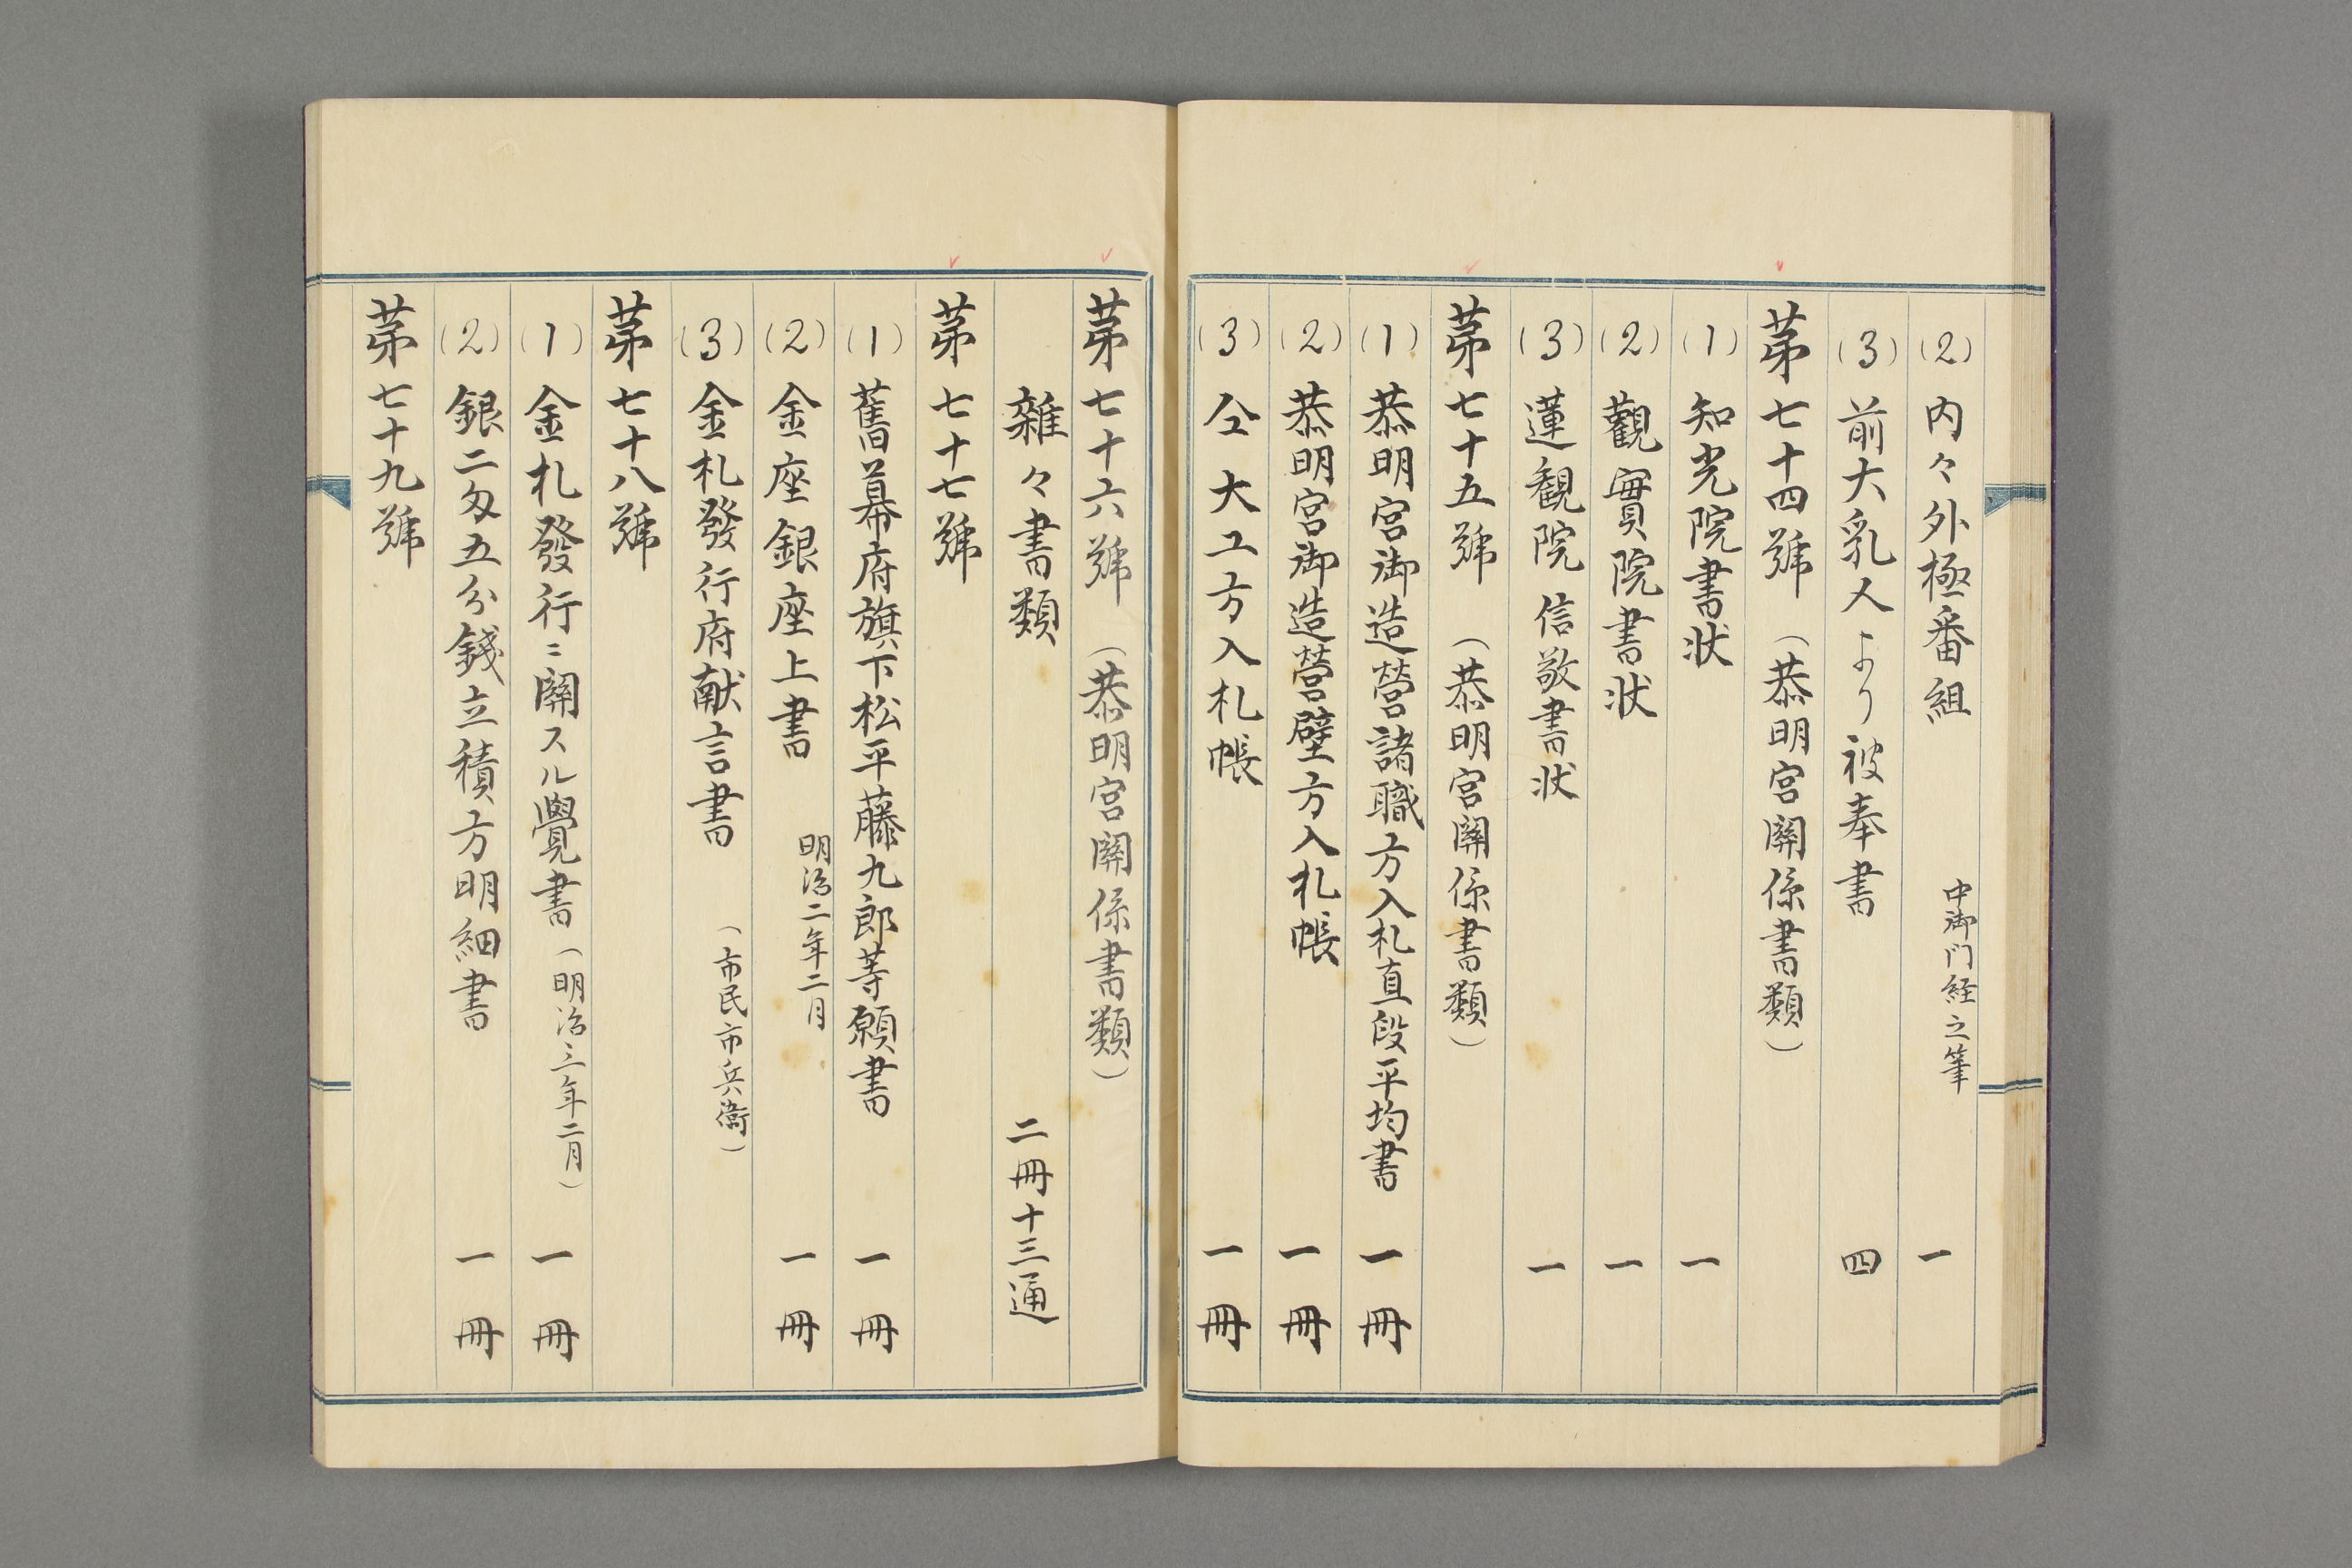 (2) 内々外極番組 中御門経之筆 一
(3) 前大乳人より被奉書 四
苐七十四號 (恭明宮關係書類)
(1) 知光院書状 一
(2) 觀實院書状 一
(3) 蓮観院信敬書状 一
苐七十五號 (恭明宮關係書類)
(1) 恭明宮御造營諸職方入札直段平均書 一冊
(2) 恭明宮御造營壁方入札帳 一冊
(3) 仝大工方入札帳 一冊
苐七十六號 (恭明宮關係書類)
雜々書類 二冊十三通
苐七十七號
(1) 舊幕府旗下松平藤九郎等願書 一冊
(2) 金座銀座上書 明治二年二月 一冊
(3) 金札發行府献言書 (市民市兵衞)
苐七十八號
(1) 金札發行ニ關スル覺書 (明治三年二月) 一冊
(2) 銀二匁五分錢立積方明細書 一冊
苐七十九號